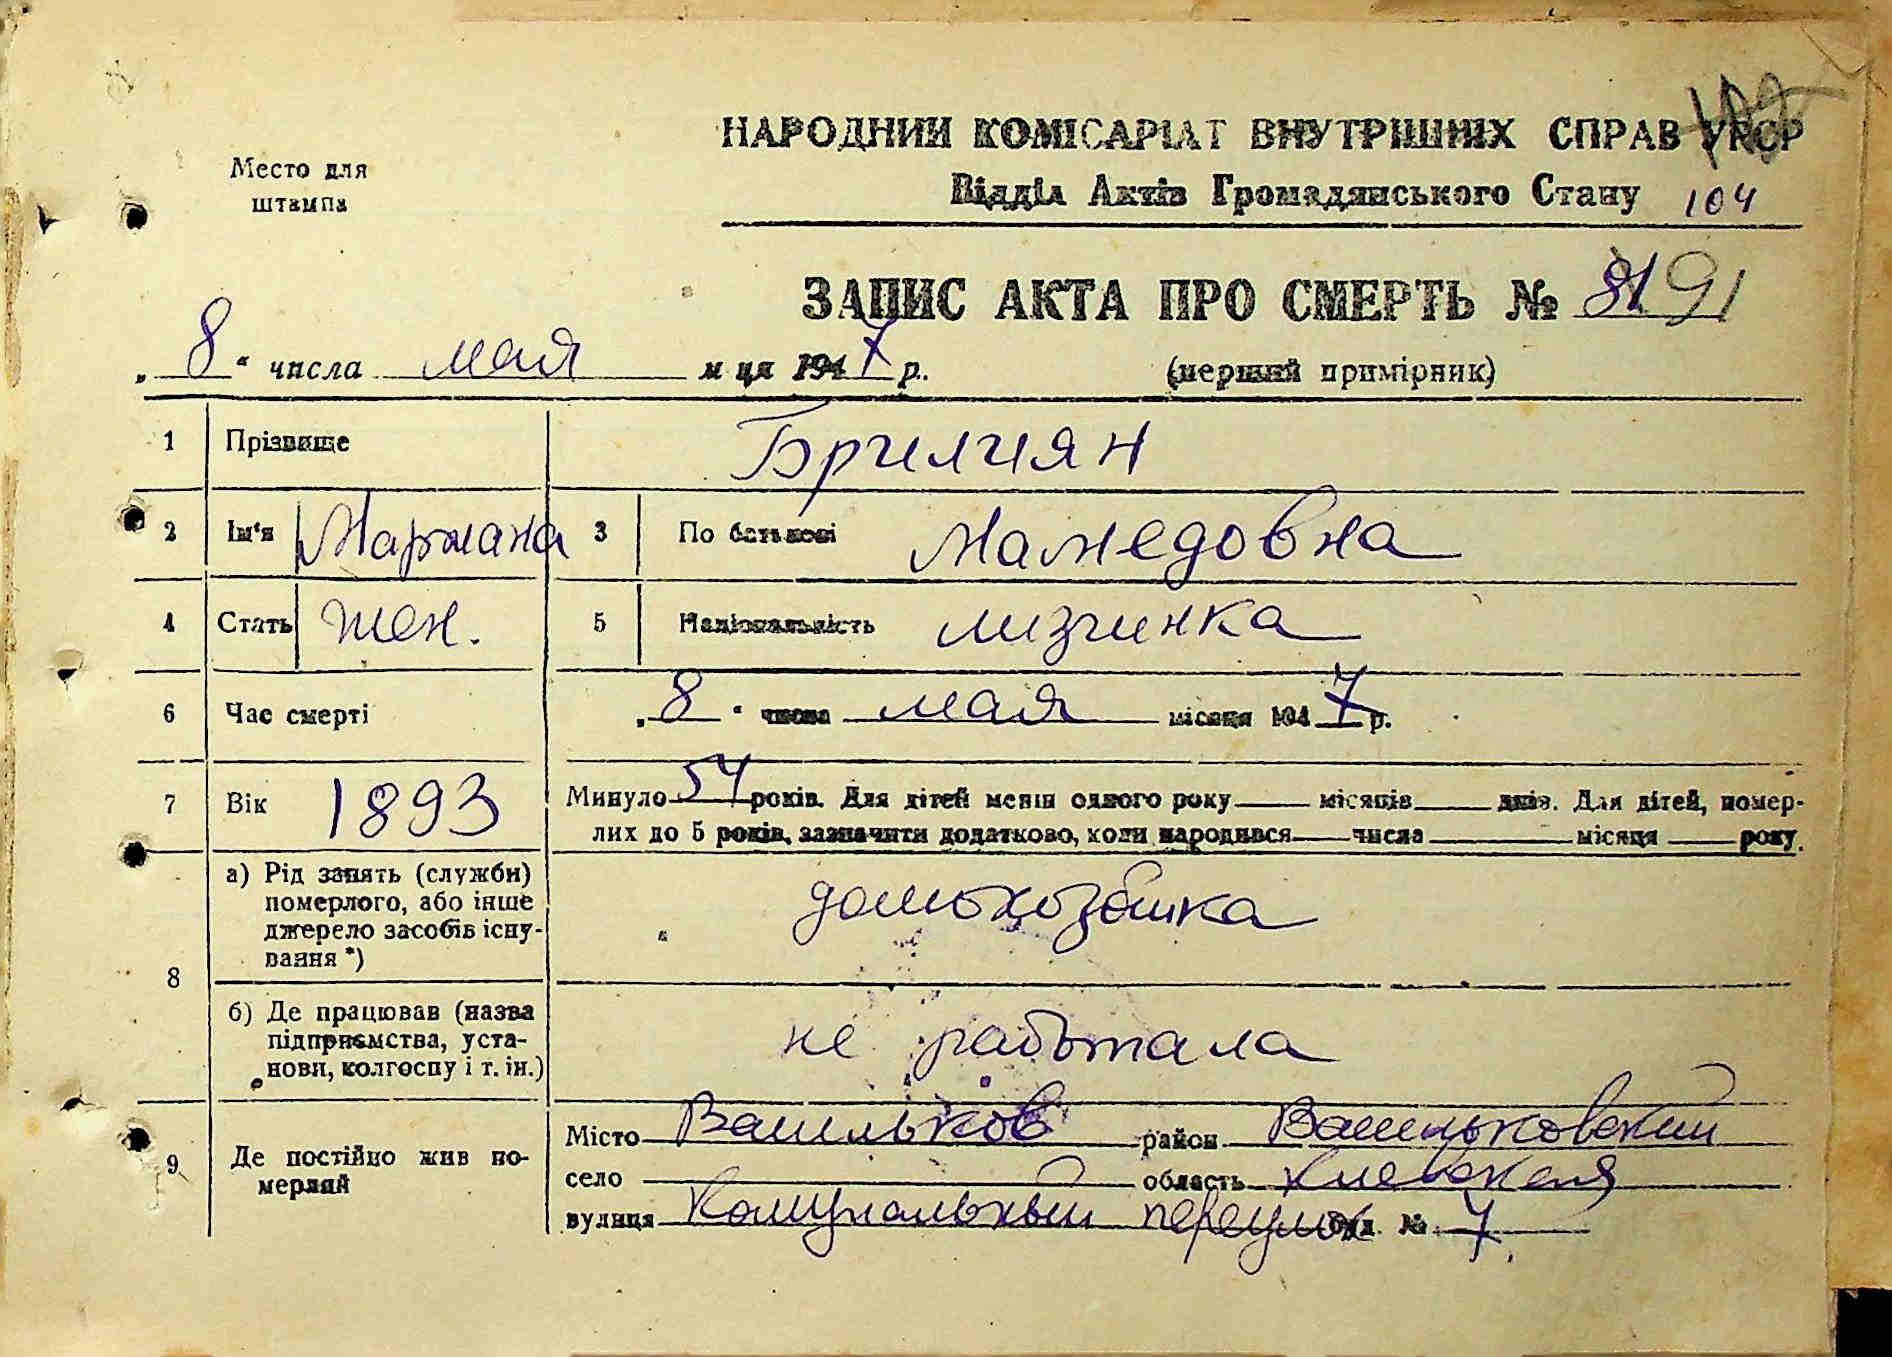 Место для штампа
НАРОДНИЙ КОМІСАРІАТ ВНУТРІШНІХ СПРАВ УРСР
Відділ Актів Громадянського Стану 104
ЗАПИС АКТА ПРО СМЕРТЬ № 81 91
„8“ числа мая м ця 1947 р. (перший примірник)
1 Прізвище Брилиян
2 Ім'я Маржана 3 По батькові Мамедовна
4 Стать жен. 5 Національність лизгинка
6 Час смерті „8“ числа мая місяця 1947 р.
7 Вік 1893 Минуло 54 років. Для дітей менш одного року місяців днів. Для дітей, помер-
лих до 5 років, зазначити додатково, коли народився числа місяця року.
8 а) Рід занять (служби) померлого, або інше джерело засобів існу-вання *) домохозяйка
б) Де працював (назва підприємства, уста-нови, колгоспу і т. ін.) не работала
9 Де постійно жив по-мерлий Місто Васильков район Васильковский
село область Киевская
вулиця Комунальный переулок буд. № 7